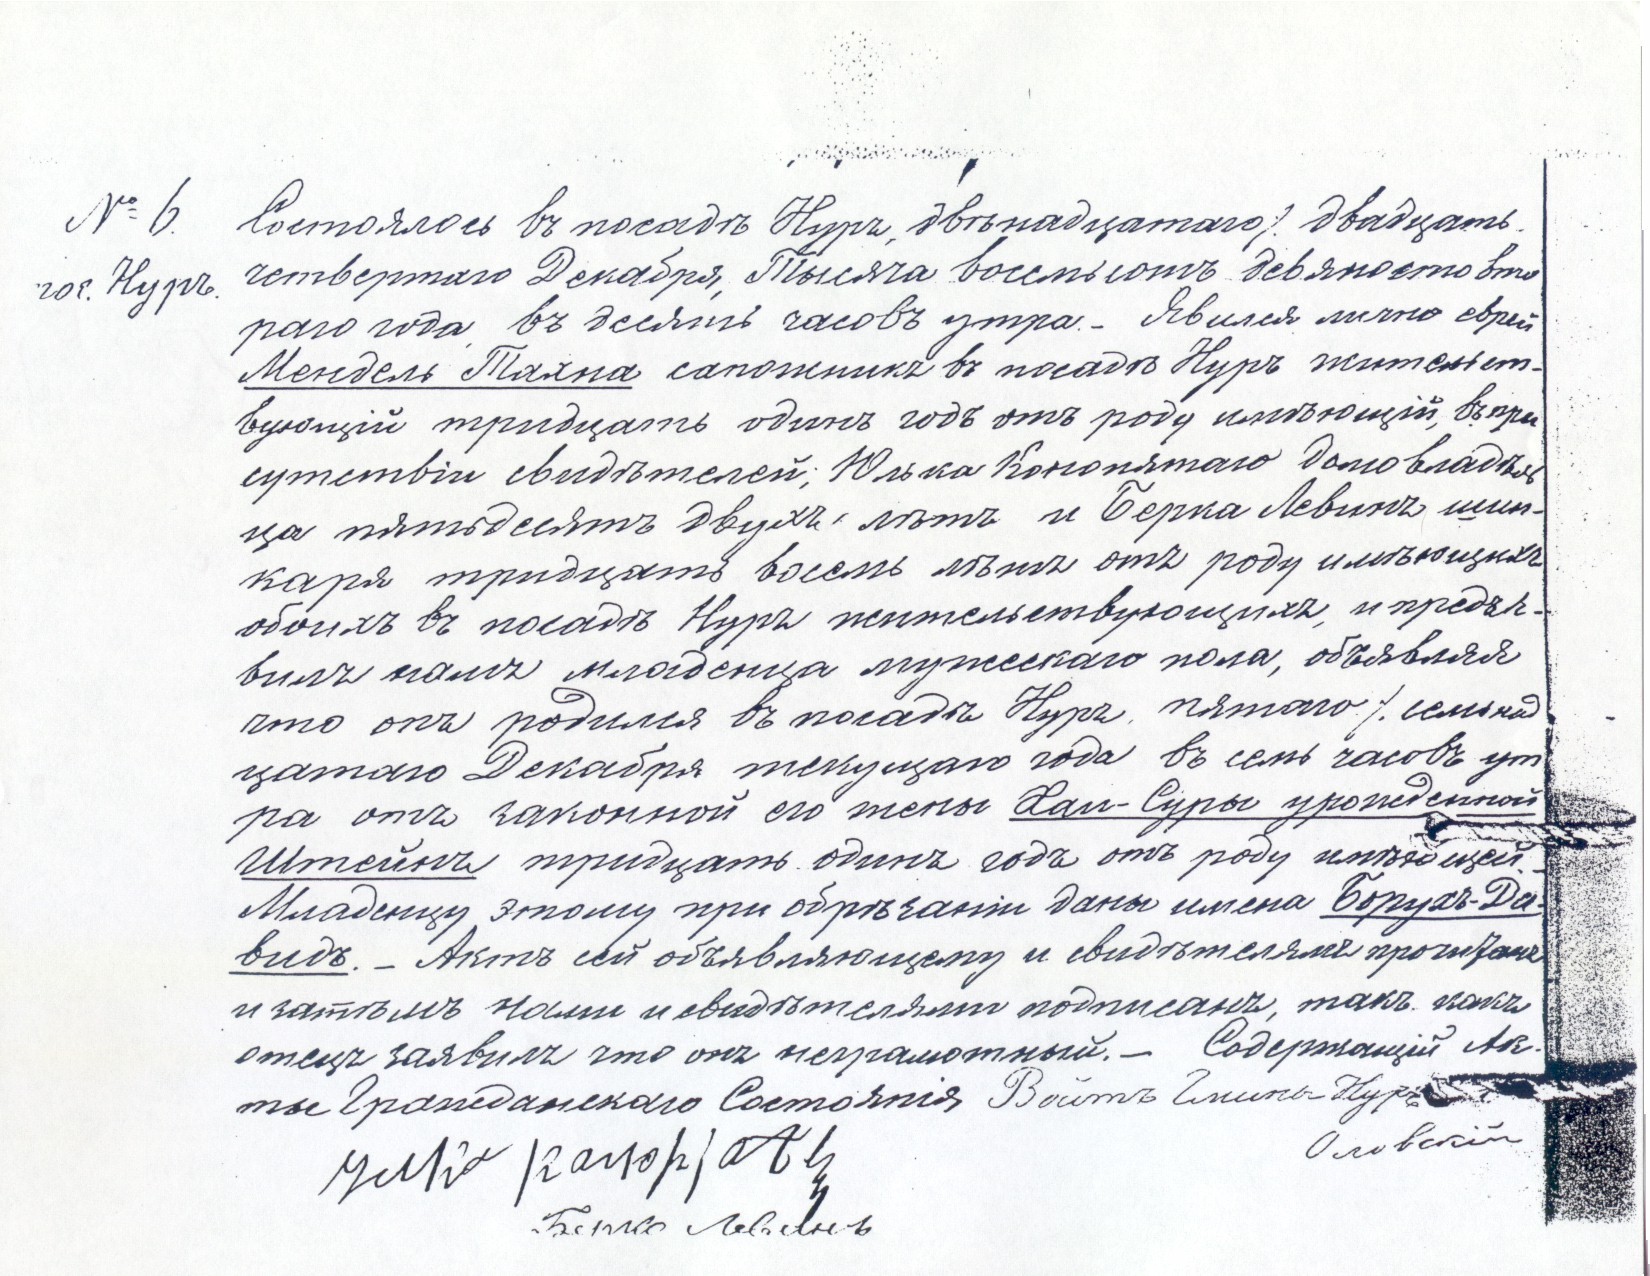 № 6.
пос. Нуръ.
Состоялось въ посадѣ Нуръ, двѣнадцатаго /. двадцать
четвертаго Декабря, Тысяча восемьсотъ девяносто вто
раго года, въ десять часовъ утра. – Явился лично еврей
Мендель Тахна сапожникъ въ посадѣ Нуръ жительст-
вующій тридцать одинъ годъ отъ роду имѣющій, въ при
сутствіи свидѣтелей; Юлька Конопятаго домовладѣль
ца пятьдесятъ двухъ лѣтъ и Берка Левинъ шин-
каря тридцать восемь лѣтъ отъ роду имѣющихъ
обоихъ въ посадѣ Нуръ жительствующихъ, и предъя-
вилъ намъ младенца мужескаго пола, объявляя
что онъ родился въ посадѣ Нуръ, пятаго /. семьнад
цатаго Декабря текущаго года въ семь часовъ ут
ра отъ законной его жены Хаи-Суры урожденной
Штейнъ тридцать одинъ годъ отъ роду имѣющей. –
Младенцу этому при обрѣзаніи даны имена Борухъ-Да-
видъ. – Актъ сей объявляющему и свидѣтелямъ прочитанъ
и затѣмъ нами и свидѣтелями подписанъ, такъ какъ
отецъ заявилъ что онъ неграмотный. – Содержащій Ак-
ты Гражданскаго Состоянія Войтъ Гмины Нуръ
Оловскій
Берко Левинъ